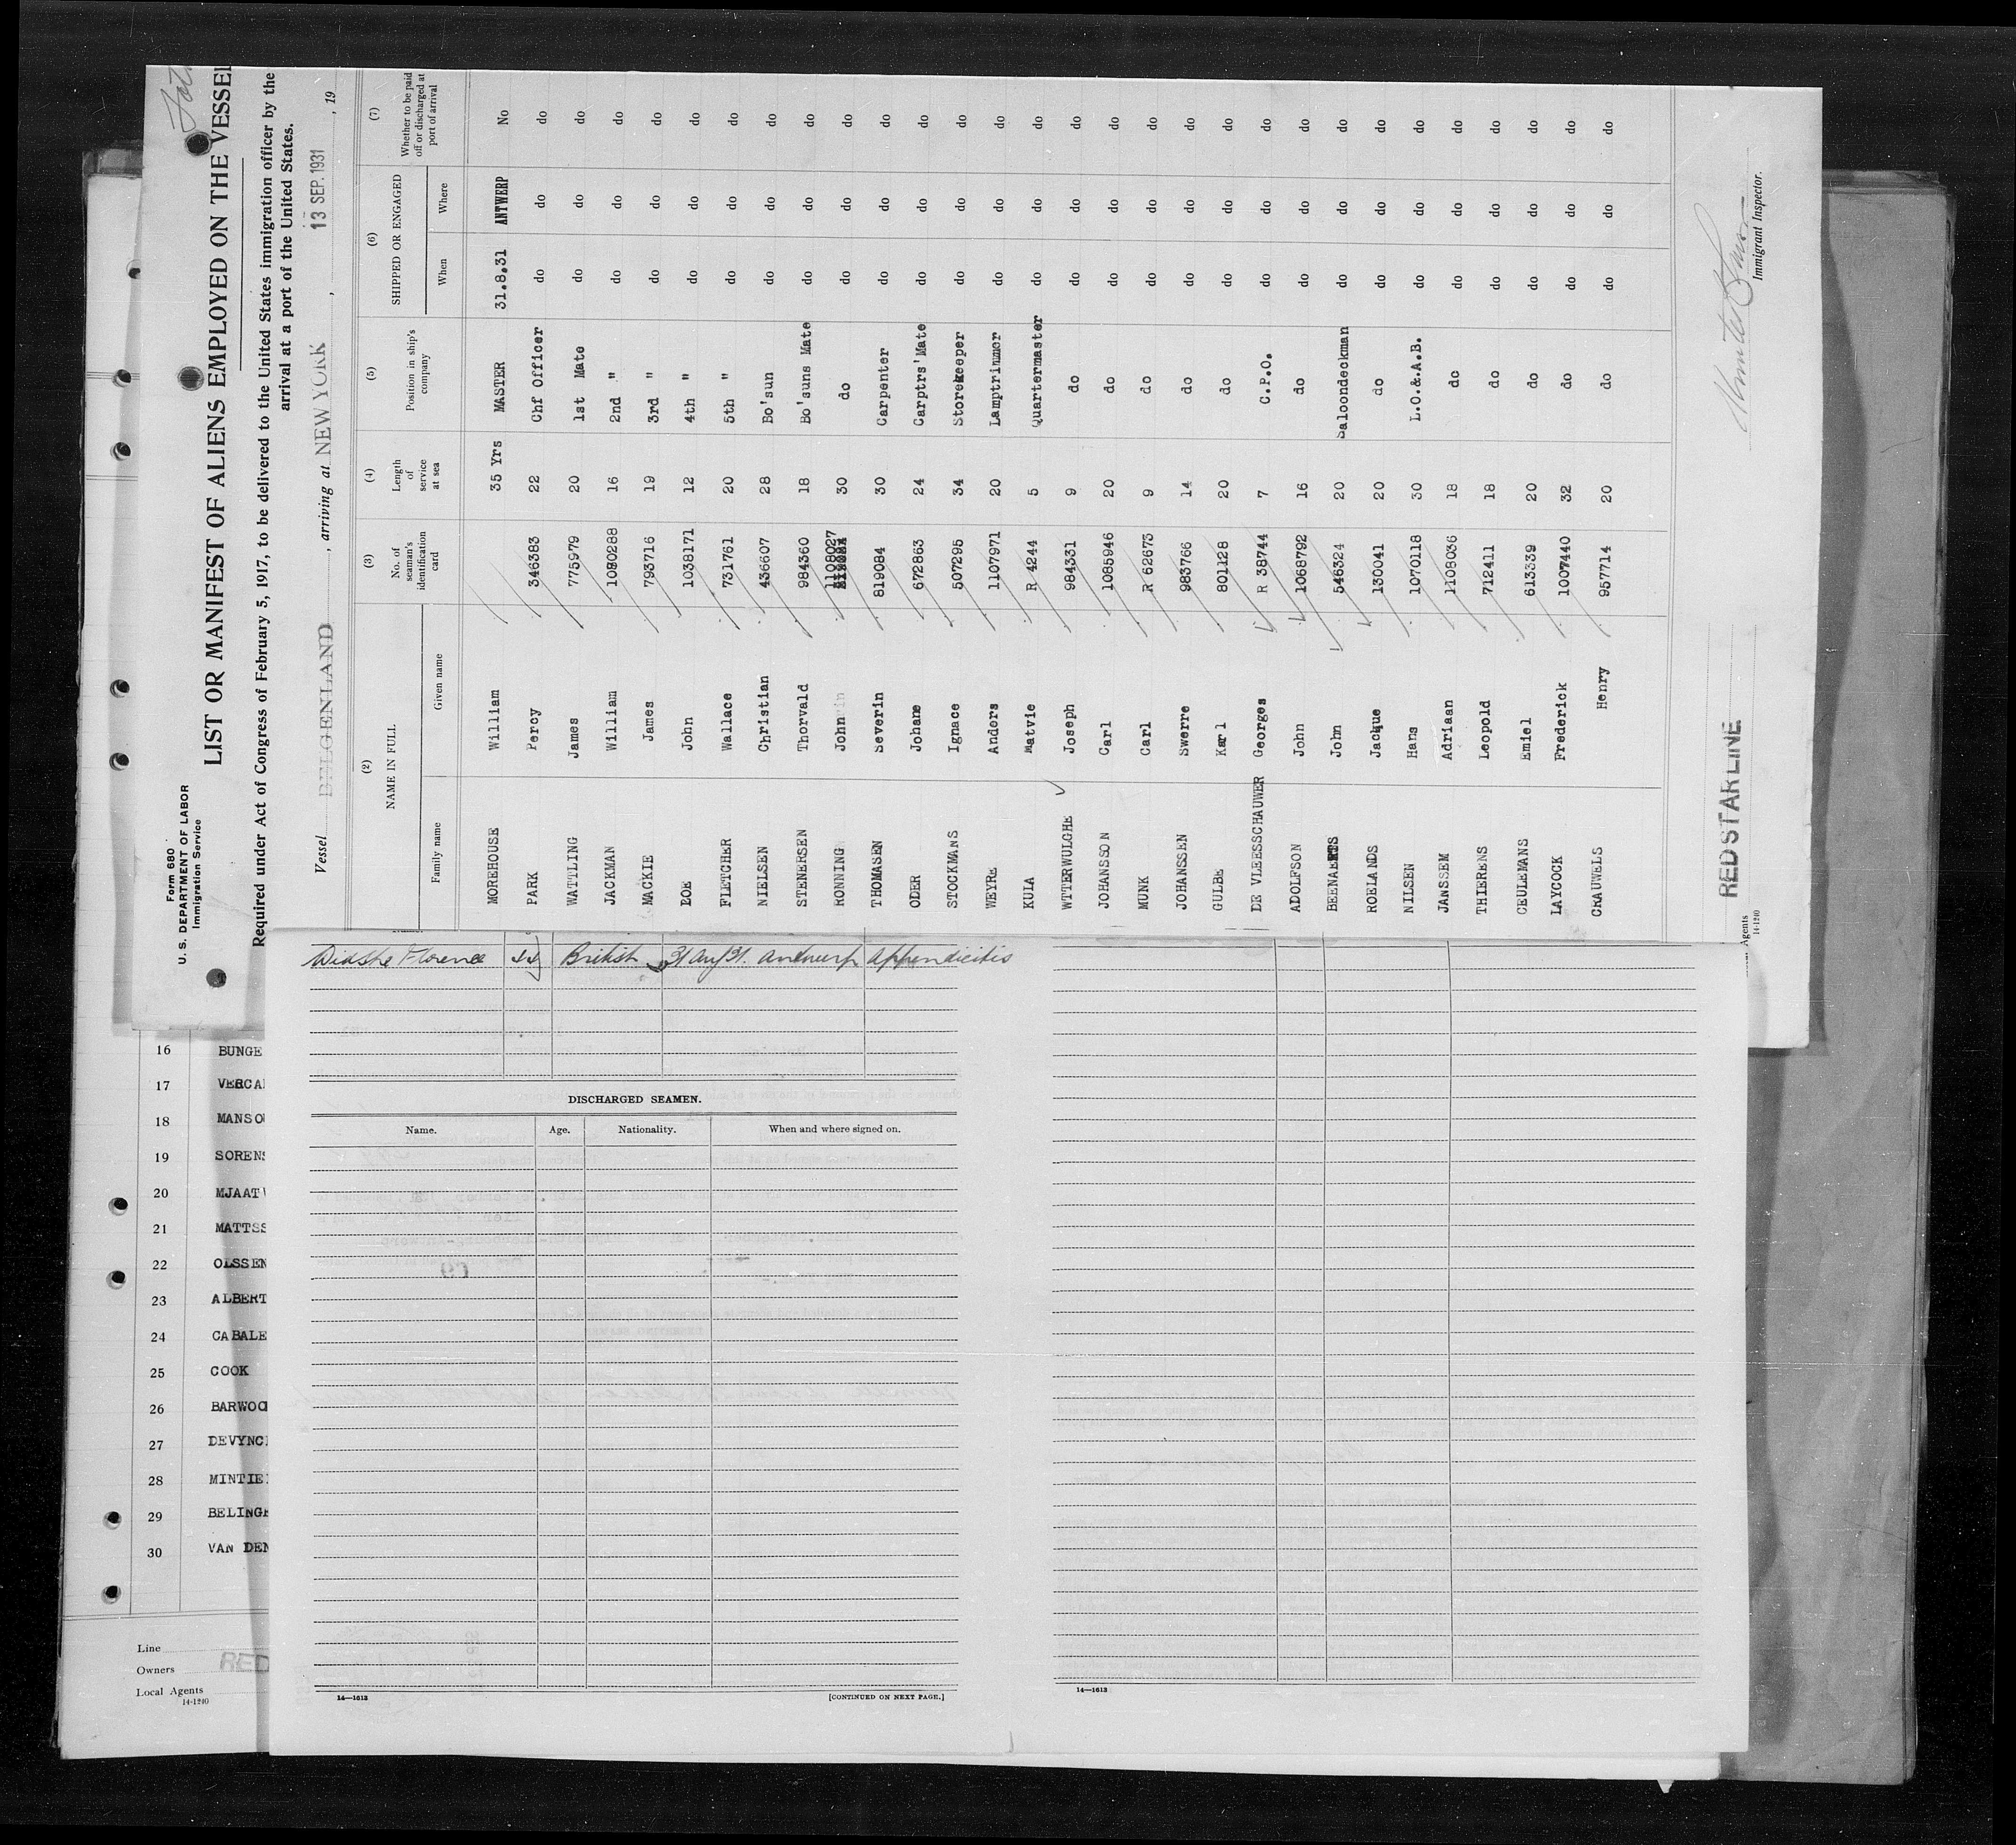 Form 680
U. S. DEPARTMENT OF LABOR
Immigration Service
LIST OR MANIFEST OF ALIENS EMPLOYED ON THE VESSEL
Required under Act of Congress of February 5, 1917, to be delivered to the United States immigration officer by the
arrival at a port of the United States.
Vessel BELGENLAND, arriving at NEW YORK, 13 SEP. 1931, 19
(2) (3) (4) (5) (6) (7)
NAME IN FULL No. of seaman's identification card Length of service at sea Position in ship's company SHIPPED OR ENGAGED Whether to be paid off or discharged at port of arrival
Family name Given name When Where
MOREHOUSE William 35 Yrs MASTER 31.8.31 ANTWERP No
PARK Percy 346383 22 Chf Officer do do do
WATTLING James 775979 20 1st Mate do do do
JACKMAN William 1080288 16 2nd " do do do
MACKIE James 793716 19 3rd " do do do
John 1038171 12 4th " do do do
FLETCHER Wallace 731761 20 5th " do do do
NIELSEN Christian 436607 28 Bo'sun do do do
STENERSEN Thorvald 984360 18 Bo'suns Mate do do do
RONNING John 1108027 30 do do do do
THOMASEN Severin 819084 30 Carpenter do do do
ODER Johane 672863 24 Carptrs'Mate do do do
STOCKMANS Ignace 507295 34 Storekeeper do do do
WEYRE Anders 1107971 20 Lamptrimmer do do do
KULA Matvie R 4244 5 Quartermaster do do do
WTTERWULGHE Joseph 984331 9 do do do do
JOHANSSON Carl 1085946 20 do do do do
MUNK Carl R 62673 9 do do do do
JOHANSSEN Swerre 983766 14 do do do do
GULBE Karl 801128 20 do do do do
DE VLEESSCHAUWER Georges R 38744 7 C.P.O. do do do
ADOLFSON John 1068792 16 do do do do
BEENAERTS John 546324 20 Saloondeckman do do do
ROELANDS Jacque 130041 20 do do do do
NILSEN Hans 1070118 30 L.O.&.A.B. do do do
JANSSEM Adriaan 1108036 18 do do do do
THIERENS Leopold 712411 18 do do do do
CEULEMANS Emiel 613339 20 do do do do
LAYCOCK Frederick 1007440 32 do do do do
CRAUWELS Henry 957714 20 do do do do
RED STAR LINE
Immigrant Inspector.
Agents
14-1240
Florence British 31 Aug 31. Antwerp Appendicitis
DISCHARGED SEAMEN.
Name. Age. Nationality. When and where signed on.
14—1613 [CONTINUED ON NEXT PAGE.]
14—1613
16 BUNGE
17 VERCA
18 MANSO
19 SORENS
20 MJAAT
21 MATTSS
22 OLSSEN
23 ALBERT
24 CABALE
25 COOK
26 BARWOO
27 DEVYNC
28 MINTIE
29 BELING
30 VAN DEN
Line
Owners RED
Local Agents
14-1240